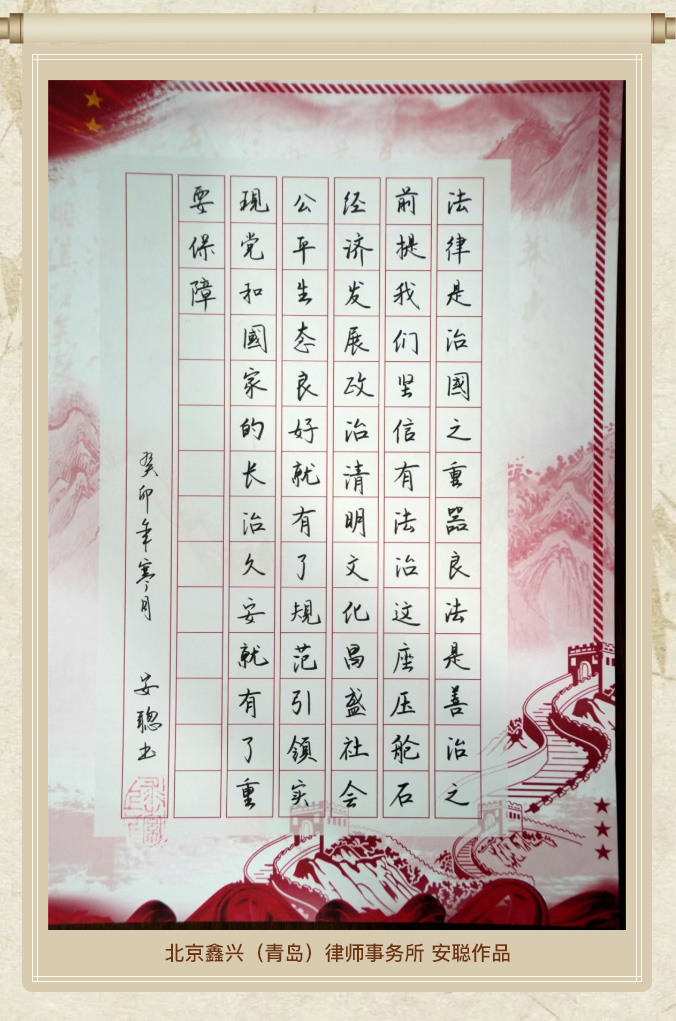 法律是治國之重器良法是善治之
前提我们坚信有法治这座压舱石
经济发展政治清明文化昌盛社会
公平生态良好就有了规范引領实
現党和國家的长治久安就有了重
要保障
癸卯年寒月 安聰书
北京鑫兴（青岛）律师事务所 安聪作品